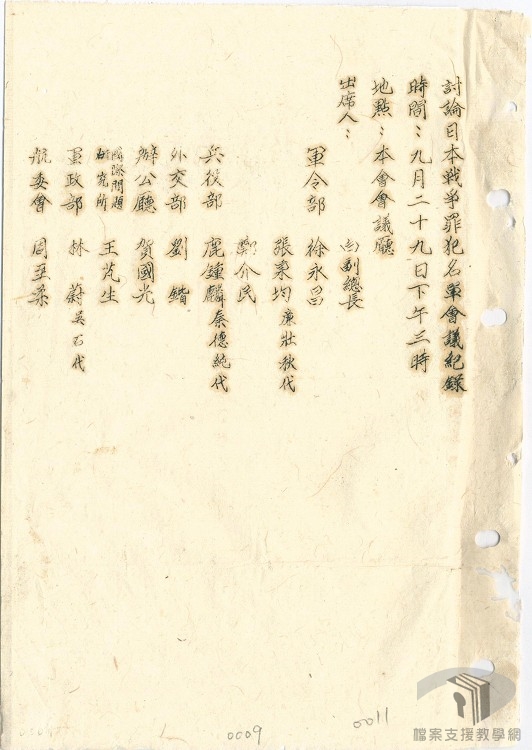 討論日本戰爭罪犯名單會議紀錄
時間：九月二十九日下午三時
地點：本會會議廳
出席人：
白副總長
軍令部 徐永昌
張秉均 廉壯秋代
鄭介民
兵役部 鹿鍾麟 秦德純代
外交部 劉鍇
辦公廳 賀國光
國際問題研究所 王芃生
軍政部 林蔚 吳石代
航委會 周至柔
0009
0011
檔案支援教學網